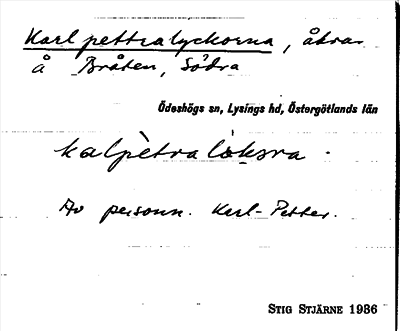 Karl pettralyckorna, åkrar
å Bråten, Södra
Ödeshögs sn, Lysings hd, Östergötlands län
kalpètralåkora
Av personn. Karl-Petter.
STIG STJÄRNE 1986